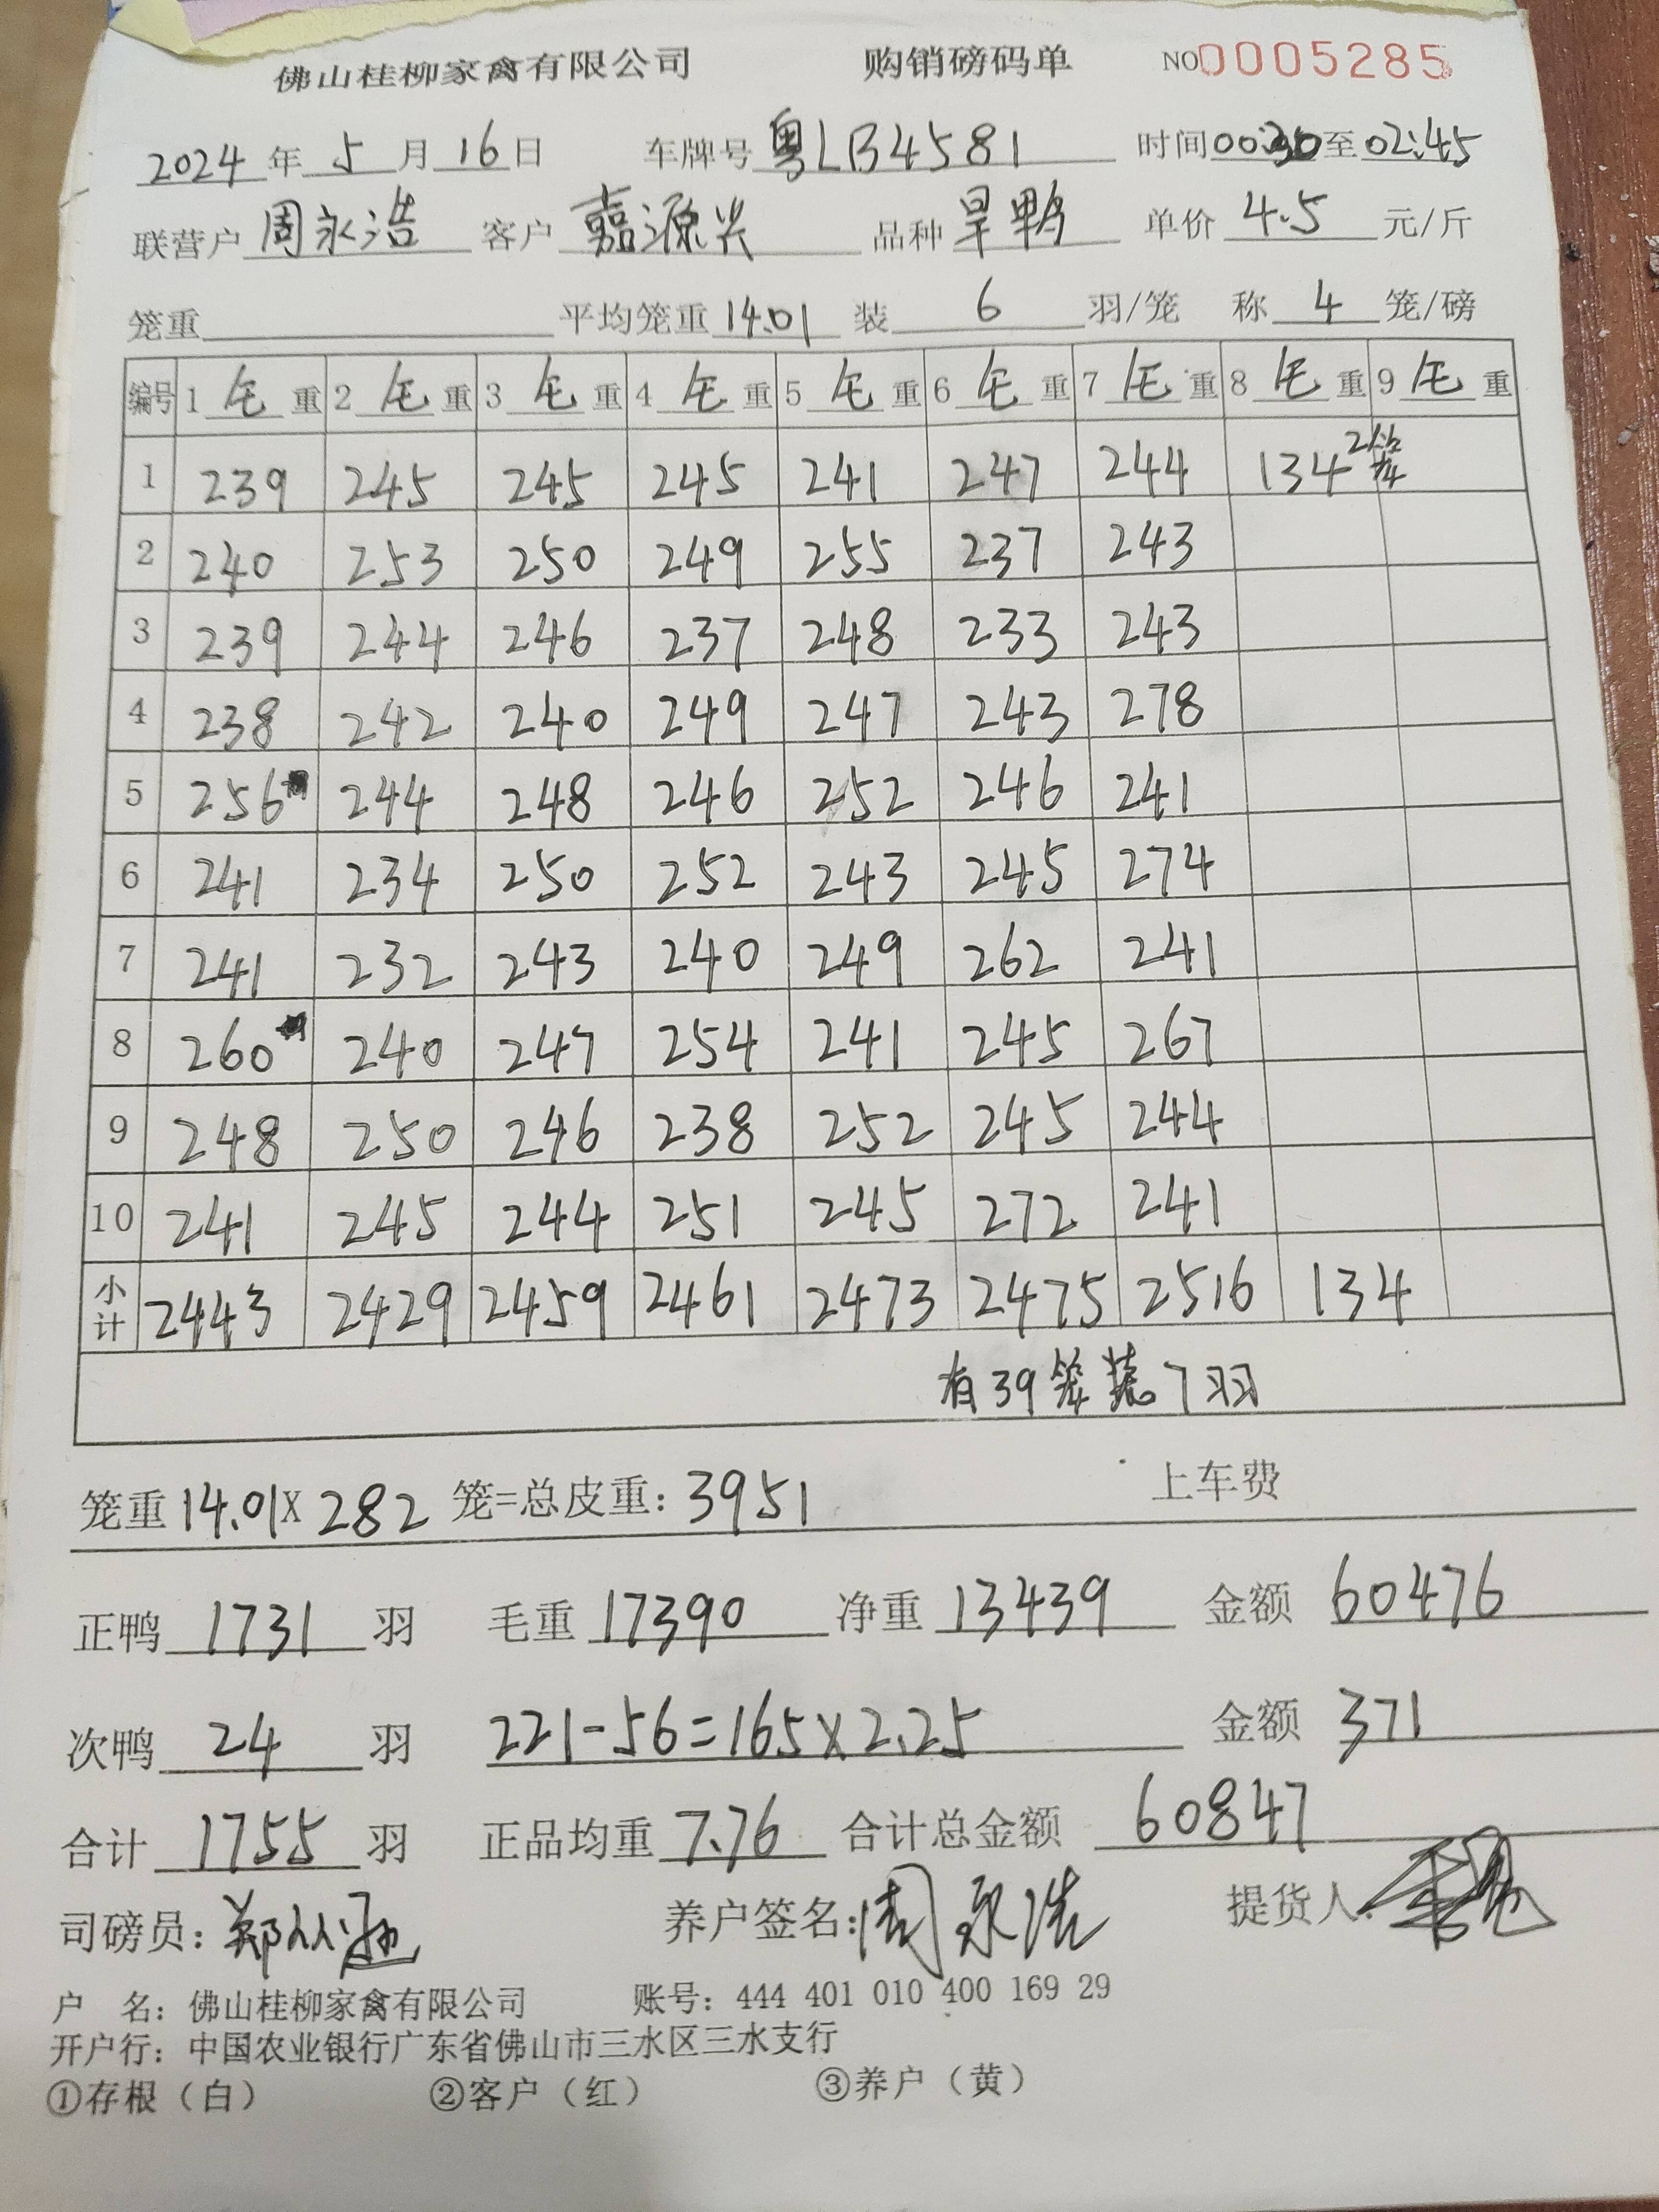 佛山桂柳家禽有限公司 购销磅码单 NO0005285
2024年5月16日 车牌号粤LB4581 时间00:30至02:45
联营户周永浩 客户嘉源兴 品种旱鸭 单价4.5元/斤
笼重 平均笼重14.01 装6羽/笼 称4笼/磅
编号 1毛重 2毛重 3毛重 4毛重 5毛重 6毛重 7毛重 8毛重 9毛重
1 239 245 245 245 241 247 244 134 2笼
2 240 253 250 249 255 237 243
3 239 244 246 237 248 233 243
4 238 242 240 249 247 243 278
5 256 244 248 246 252 246 241
6 241 234 250 252 243 245 274
7 241 232 243 240 249 262 241
8 260 240 247 254 241 245 267
9 248 250 246 238 252 245 244
10 241 245 244 251 245 272 241
小计 2443 2429 2459 2461 2473 2475 2516 134
有39笼装7羽
笼重14.01X282笼=总皮重:3951 上车费
正鸭1731羽 毛重17390 净重13439 金额60476
次鸭24羽 221-56=165×2.25 金额371
合计1755羽 正品均重7.76 合计总金额60847
司磅员:郑 养户签名:周永浩 提货人:
户 名:佛山桂柳家禽有限公司 账号:444 401 010 400 169 29
开户行:中国农业银行广东省佛山市三水区三水支行
①存根（白） ②客户（红） ③养户（黄）